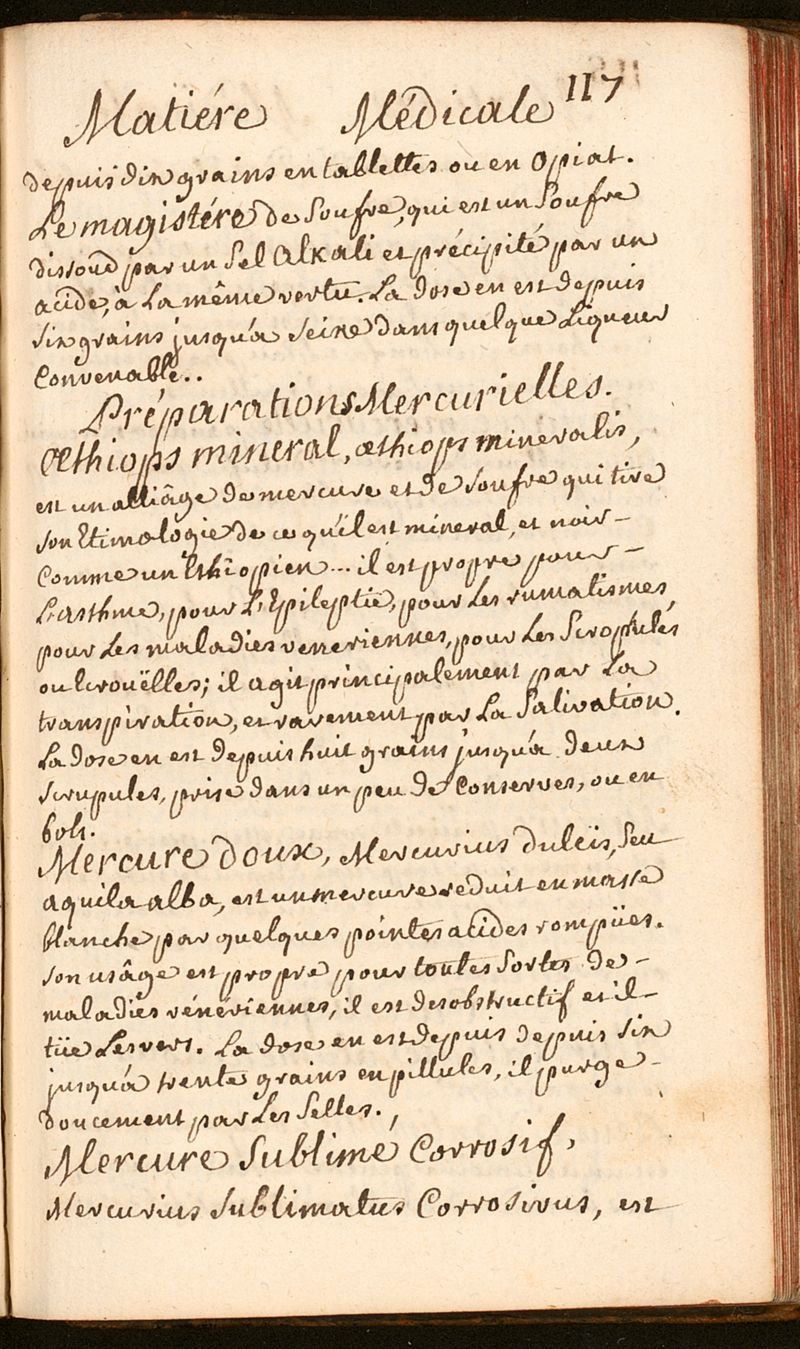 Matiére Médicale 117
depuis dix grains en tablettes ou en Opiat.
Le magistére de Soufre, qui est un Soufre
dissoud par un Sel Alkali et précipité par un
acide, à La même vertu. La dose en est depuis
six grains jusqu'a seize dans quelque Liqueur
Convenable..
Préparations Mercurielles.
Œthiops mineral, œthiops mineralis,
est un alliâge de mercure et de Soufre qui tire
son Etimologie de ce qu'il est mineral, et noir-
Comme un Ethiopien... il est propre pour-
L'asthme, pour L'Epileptie, pour Les rumatismes,
pour Les maladies veneriennes, pour Les Scropulés
ou Ecrouëlles; il agit principalement par La
transpiration, et rarement par La Salivation.
La dose en est depuis huit grains jusqu'a deux
scrupules, prise dans un peu de Conserves, ou en
bols.
Mercure doux, Mercurius dulcis, Seu
aquila alba, est un mercure reduit en masse
blanche par quelques pointes acides rompües.
son usâge est propre pour toutes Sortes de-
maladies vénériennes, il est desobstructif et il-
tüe Les vers. La dose en est depuis depuis six
jusqu'a trente grains en pillules, il purge-
doucement par Les Selles.
Mercure Sublimé Corrosif,
Mercurius Sublimatus Corrosivus, est